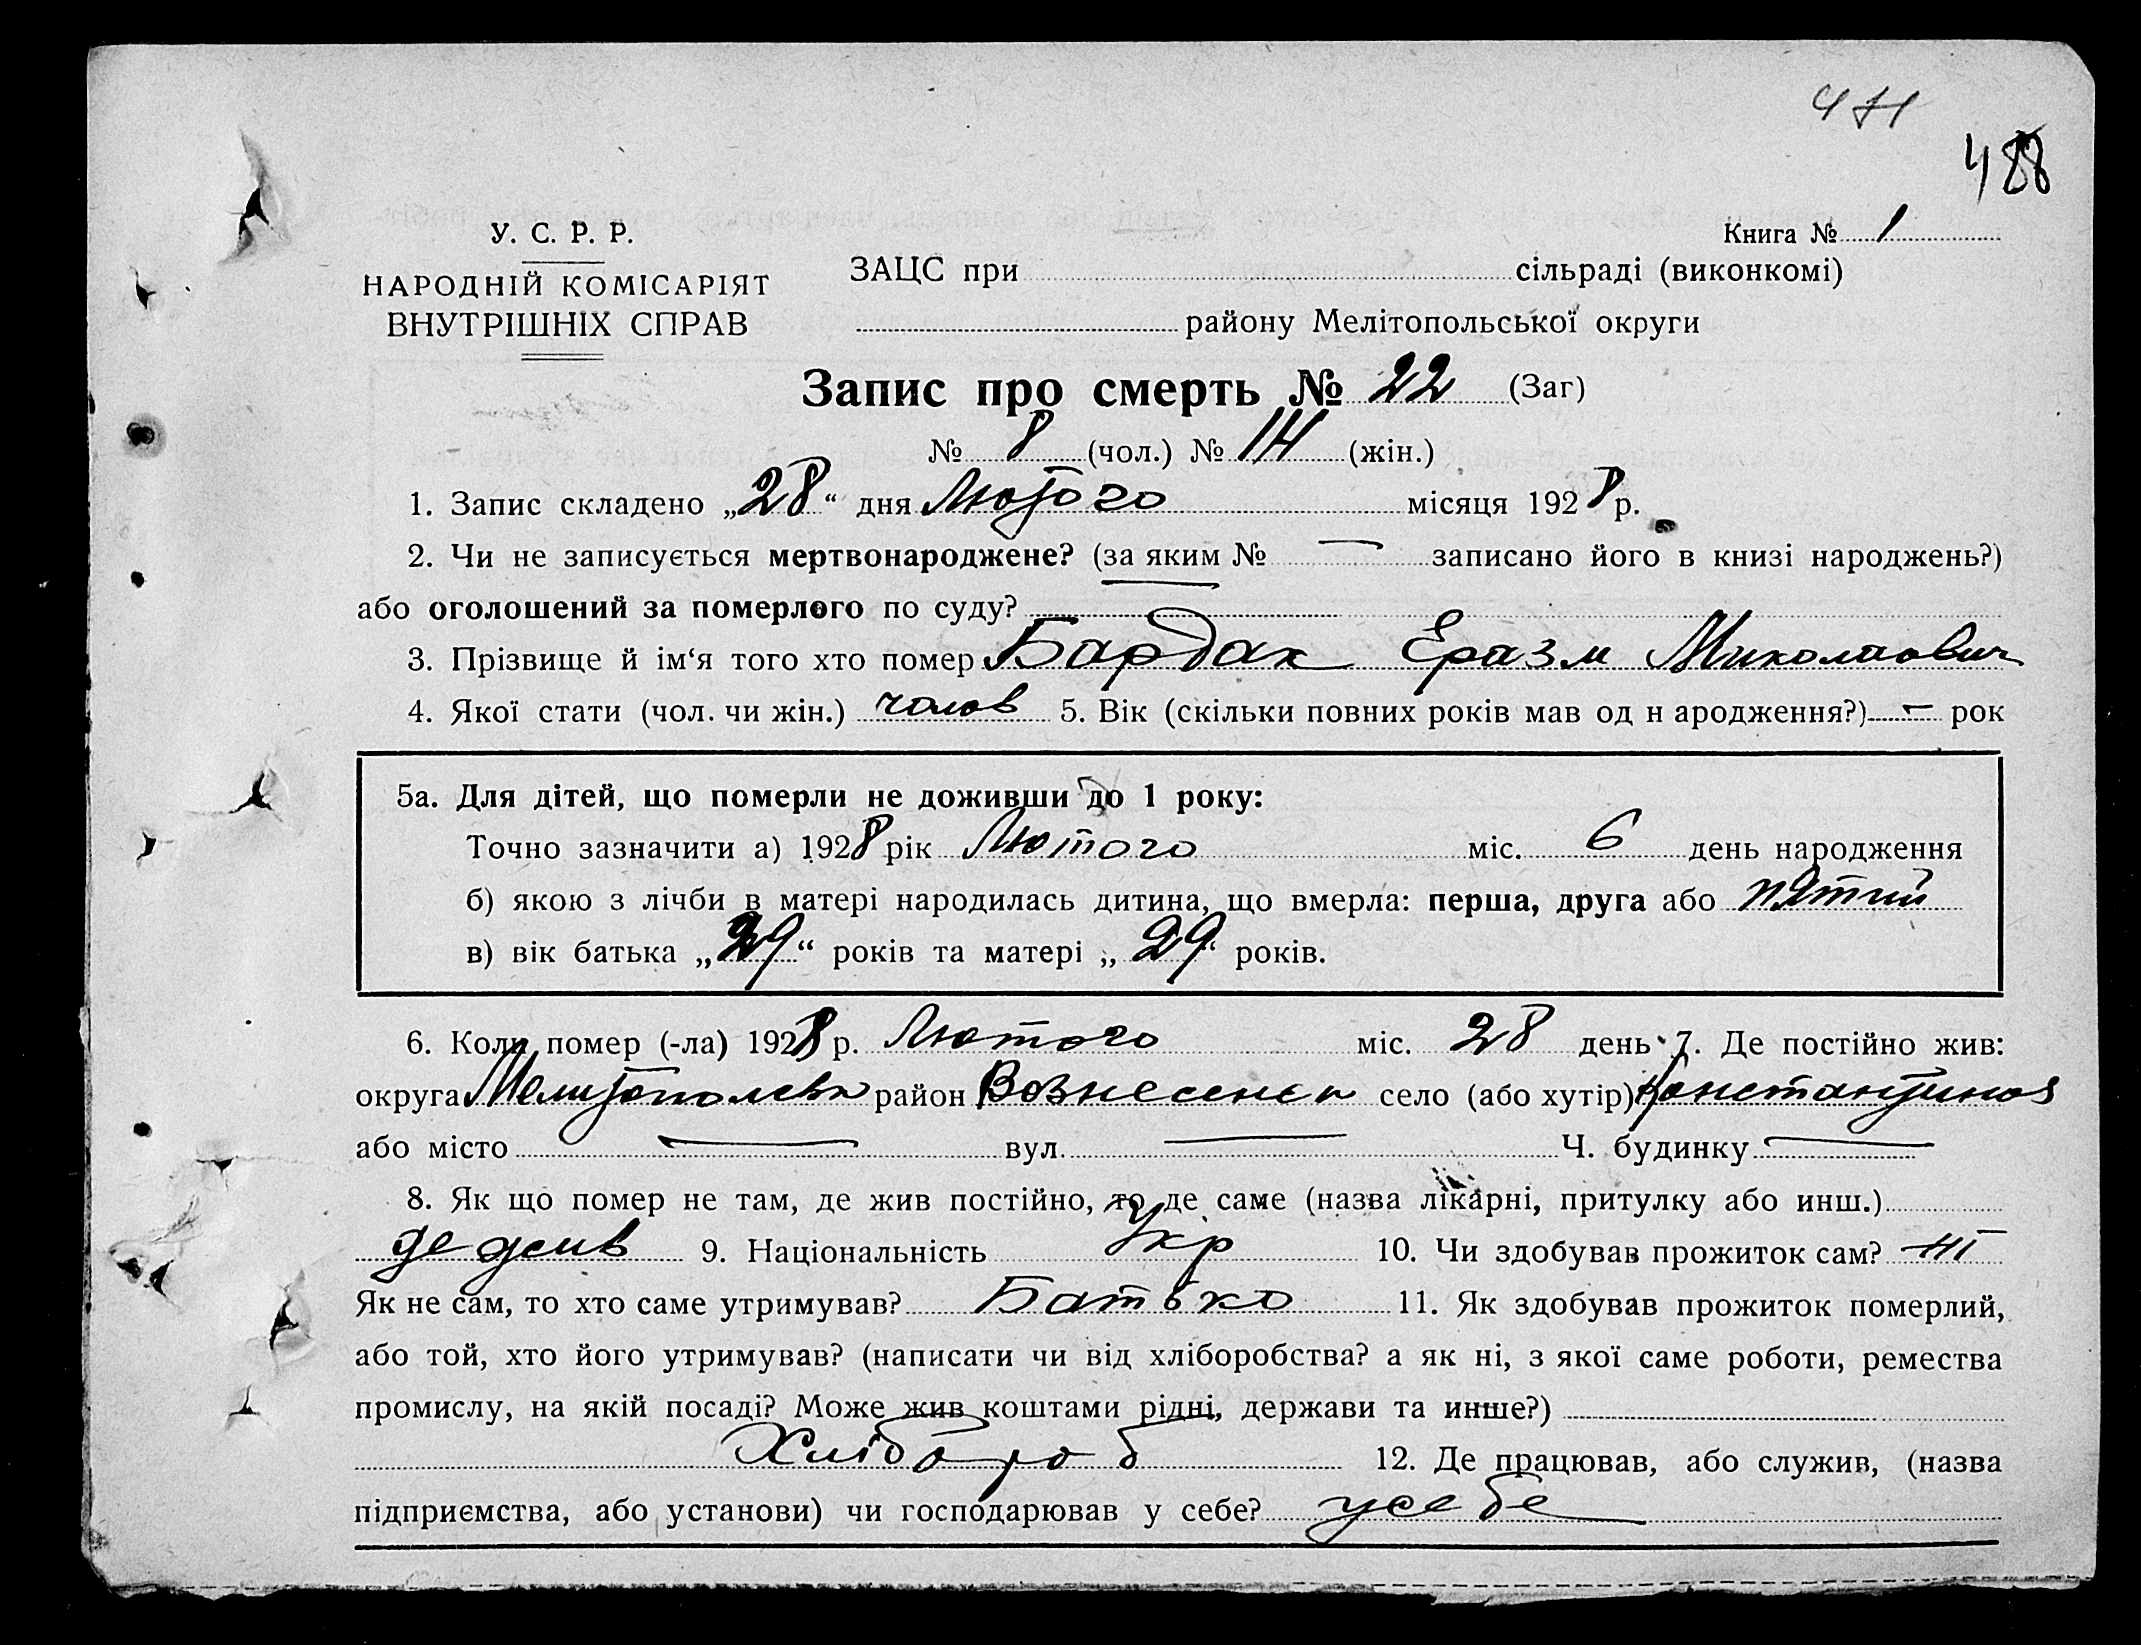 471
488
У. С. Р. Р.
Книга № 1
НАРОДНІЙ КОМІСАРІЯТ
ВНУТРІШНІХ СПРАВ
ЗАЦС при сільраді (виконкомі)
району Мелітопольської округи
Запис про смерть № 22 (Заг)
№ 8 (чол.) № 14 (жін.)
1. Запис складено „28“ дня Лютого місяця 1928 р.
2. Чи не записується мертвонароджене? (за яким № — записано його в книзі народжень?)
або оголошений за померлого по суду?
3. Прізвище й ім‘я того хто помер Бардак Еразм Миколаович
4. Якої стати (чол. чи жін.) чолов 5. Вік (скільки повних років мав од н ародження?) — рок
5а. Для дітей, що померли не доживши до 1 року:
Точно зазначити а) 1928 рік Лютого міс. 6 день народження
б) якою з лічби в матері народилась дитина, що вмерла: перша, друга або пятий
в) вік батька „29“ років та матері „29“ років.
6. Коли помер (-ла) 1928 р. Лютого міс. 28 день 7. Де постійно жив:
округа район Вознесенск село (або хутір) Константинов
або місто — вул. — Ч. будинку —
8. Як що помер не там, де жив постійно, то де саме (назва лікарні, притулку або инш.)
де жив 9. Національність Укр 10. Чи здобував прожиток сам? ні
Як не сам, то хто саме утримував? Батько 11. Як здобував прожиток померлий,
або той, хто його утримував? (написати чи від хліборобства? а як ні, з якої саме роботи, ремества
промислу, на якій посаді? Може жив коштами рідні, держави та инше?)
Хлібороб 12. Де працював, або служив, (назва
підприємства, або установи) чи господарював у себе? усебе